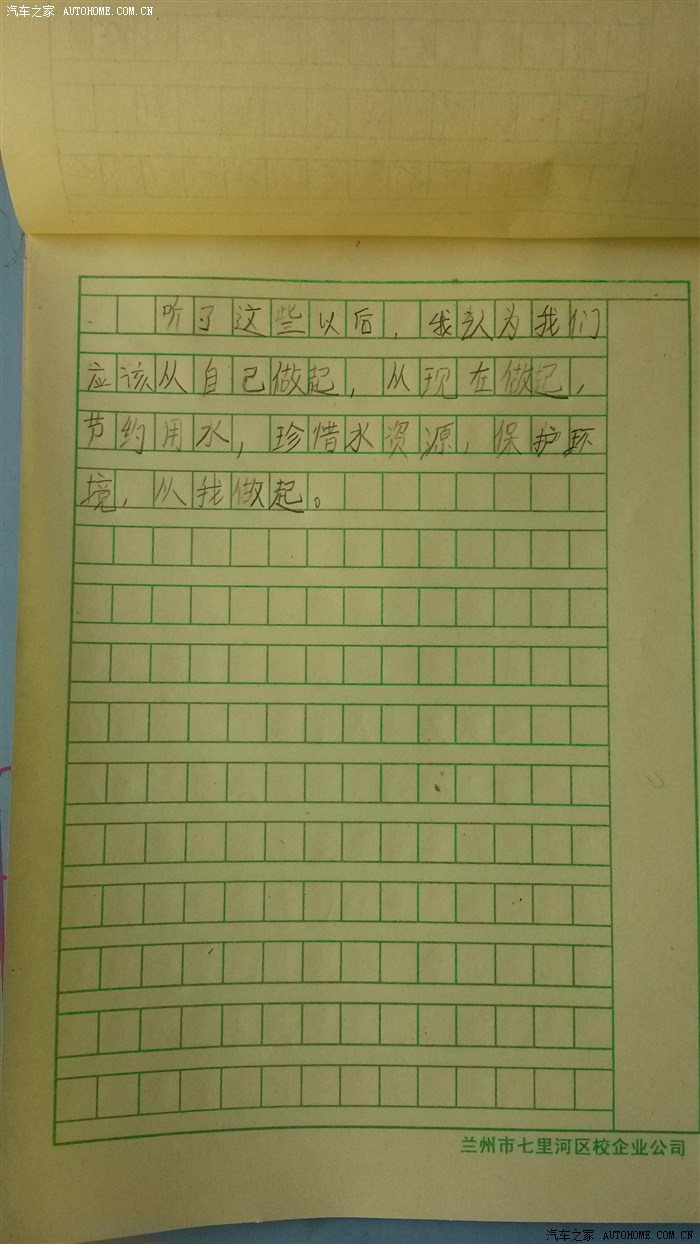 汽车之家 AUTOHOME.COM.CN
听了这些以后，我认为我们
应该从自己做起，从现在做起，
节约用水，珍惜水资源，保护环
境，从我做起。
兰州市七里河区校企业公司
汽车之家 AUTOHOME.COM.CN